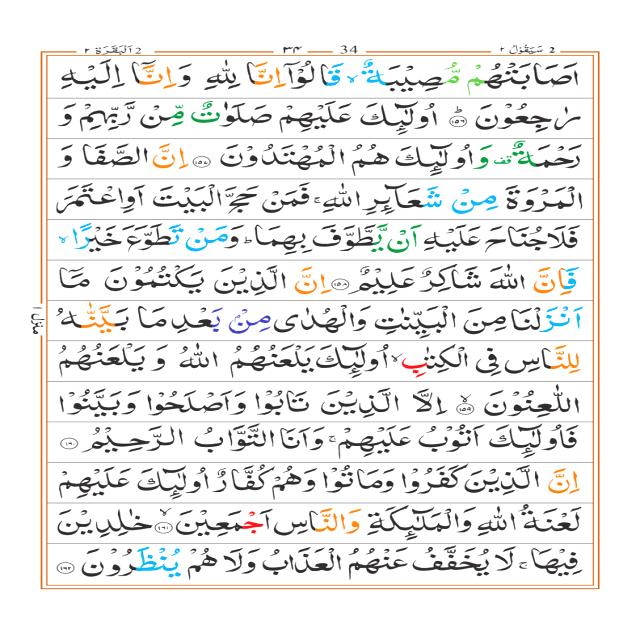 2 اَلْبَقَرَة ٢ ٣۴ 34 2 سَيَقُوْلُ ٢
اَصَابَتْهُمْ مُّصِيْبَةٌ ۙ قَالُوْٓا اِنَّا لِلّٰهِ وَ اِنَّاۤ اِلَيْهِ
رٰجِعُوْنَ ؕ﴿۱۵۶﴾ اُولٰٓئِكَ عَلَيْهِمْ صَلَوٰتٌ مِّنْ رَّبِّهِمْ وَ
رَحْمَةٌ ۟ وَ اُولٰٓئِكَ هُمُ الْمُهْتَدُوْنَ ﴿۱۵۷﴾ اِنَّ الصَّفَا وَ
الْمَرْوَةَ مِنْ شَعَآئِرِ اللّٰهِ ۚ فَمَنْ حَجَّ الْبَيْتَ اَوِ اعْتَمَرَ
فَلَا جُنَاحَ عَلَيْهِ اَنْ يَّطَّوَّفَ بِهِمَا ؕ وَ مَنْ تَطَوَّعَ خَيْرًا ۙ
فَاِنَّ اللّٰهَ شَاكِرٌ عَلِيْمٌ ﴿۱۵۸﴾ اِنَّ الَّذِيْنَ يَكْتُمُوْنَ مَاۤ
اَنْزَلْنَا مِنَ الْبَيِّنٰتِ وَالْهُدٰى مِنْۢ بَعْدِ مَا بَيَّنّٰهُ
لِلنَّاسِ فِى الْكِتٰبِ ۙ اُولٰٓئِكَ يَلْعَنُهُمُ اللّٰهُ وَ يَلْعَنُهُمُ
اللّٰعِنُوْنَ ۙ﴿۱۵۹﴾ اِلَّا الَّذِيْنَ تَابُوْا وَاَصْلَحُوْا وَ بَيَّنُوْا
فَاُولٰٓئِكَ اَتُوْبُ عَلَيْهِمْ ۚ وَاَنَا التَّوَّابُ الرَّحِيْمُ ﴿۱۶۰﴾
اِنَّ الَّذِيْنَ كَفَرُوْا وَمَاتُوْا وَهُمْ كُفَّارٌ اُولٰٓئِكَ عَلَيْهِمْ
لَعْنَةُ اللّٰهِ وَالْمَلٰٓئِكَةِ وَالنَّاسِ اَجْمَعِيْنَ ۙ﴿۱۶۱﴾ خٰلِدِيْنَ
فِيْهَا ۚ لَا يُخَفَّفُ عَنْهُمُ الْعَذَابُ وَلَا هُمْ يُنْظَرُوْنَ ﴿۱۶۲﴾
منزل ۱